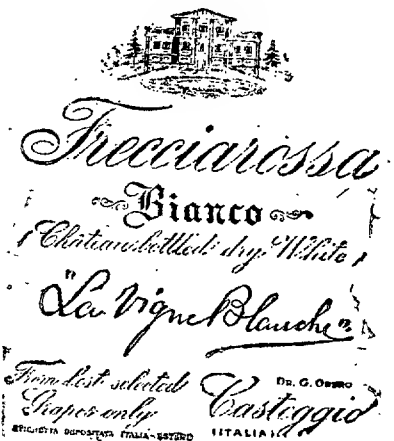 Frecciarossa
Bianco
Château bottled dry White
"La Vigne Blanche"
From best selected
Grapes only
Dr. G. Odero
Casteggio
(ITALIA)
ETICHETTA DEPOSITATA ITALIA-ESTERO